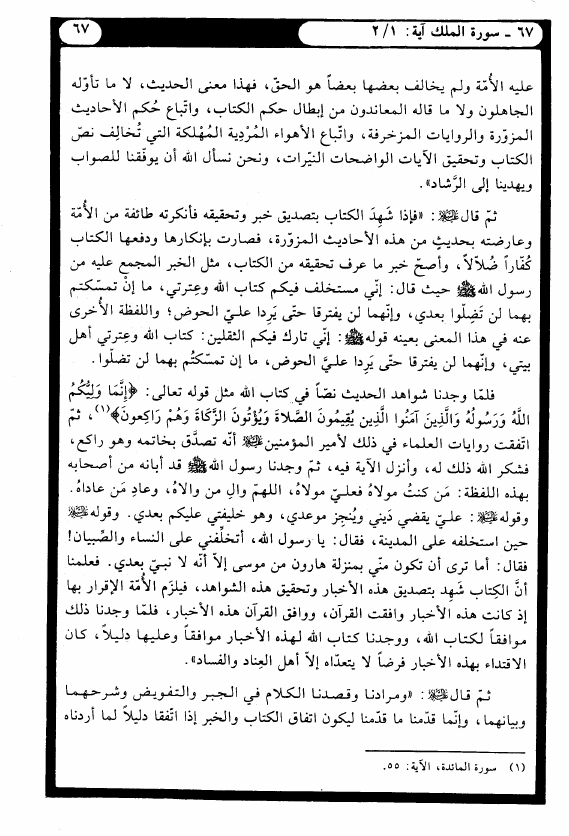 ٦٧ ـ سورة الملك آية: ١/ ٢
٦٧
عليه الأُمّة ولم يخالف بعضها بعضاً هو الحقّ، فهذا معنى الحديث، لا ما تأوّله
الجاهلون ولا ما قاله المعاندون من إبطال حكم الكتاب، واتّباع حُكم الأحاديث
المزوّرة والروايات المزخرفة، واتّباع الأهواء المُرْدِية المُهْلكة التي تُخالِف نصّ
الكتاب وتحقيق الآيات الواضحات النيّرات، ونحن نسأل الله أن يوفّقنا للصواب
ويهدينا إلى الرَّشاد».
ثمّ قال ﷺ: «فإذا شَهِدَ الكتاب بتصديق خبر وتحقيقه فأنكرته طائفة من الأُمّة
وعارضته بحديثٍ من هذه الأحاديث المزوّرة، فصارت بإنكارها ودفعها الكتاب
كُفّاراً ضُلاّلاً، وأصحّ خبر ما عرف تحقيقه من الكتاب، مثل الخبر المجمع عليه من
رسول الله ﷺ حيث قال: إنّي مستخلف فيكم كتاب الله وعِترتي، ما إنْ تمسّكتم
بهما لن تَضِلّوا بعدي، وإنّهما لن يفترقا حتّى يَرِدا عليّ الحوض؛ واللفظة الأُخرى
عنه في هذا المعنى بعينه قوله ﷺ: إنّي تارك فيكم الثقلين: كتاب الله وعِترتي أهل
بيتي، وإنّهما لن يفترقا حتّى يَرِدا عليَّ الحوض، ما إن تمسّكتُم بهما لن تضلّوا.
فلمّا وجدنا شواهد الحديث نصّاً في كتاب الله مثل قوله تعالى: ﴿إِنَّمَا وَلِيُّكُمُ
اللَّهُ وَرَسُولُهُ وَالَّذِينَ آمَنُوا الَّذِينَ يُقِيمُونَ الصَّلاَةَ وَيُؤْتُونَ الزَّكَاةَ وَهُمْ رَاكِعونَ﴾(١)، ثمّ
اتّفقت روايات العلماء في ذلك لأمير المؤمنين أنّه تصدَّق بخاتمه وهو راكع،
فشكر الله ذلك له، وأنزل الآية فيه، ثمّ وجدنا رسول الله ﷺ قد أبانه من أصحابه
بهذه اللفظة: مَن كنتُ مولاهُ فعليّ مولاهُ، اللهمّ والِ من والاهُ، وعادِ مَن عاداهُ.
وقوله: عليّ يقضي دَيني ويُنجِز موعدي، وهو خليفتي عليكم بعدي. وقوله
حين استخلفه على المدينة، فقال: يا رسول الله، أتخلِّفني على النساء والصِّبيان!
فقال: أما ترى أن تكون منّي بمنزلة هارون من موسى إلاّ أنّه لا نبيّ بعدي. فعلمنا
أنَّ الكِتاب شَهِد بتصديق هذه الأخبار وتحقيق هذه الشواهد، فيلزَم الأُمّة الإقرار بها
إذ كانت هذه الأخبار وافقت القرآن، ووافق القرآن هذه الأخبار، فلمّا وجدنا ذلك
موافقاً لكتاب الله، ووجدنا كتاب الله لهذه الأخبار موافقاً وعليها دليلاً، كان
الاقتداء بهذه الأخبار فرضاً لا يتعدّاه إلاّ أهل العِناد والفساد».
ثمّ قال: «ومرادنا وقصدنا الكلام في الجبر والتفويض وشرحهما
وبيانهما، وإنّما قدّمنا ما قدّمنا ليكون اتفاق الكتاب والخبر إذا اتّفقا دليلاً لما أردناه
(١) سورة المائدة، الآية: ٥٥.